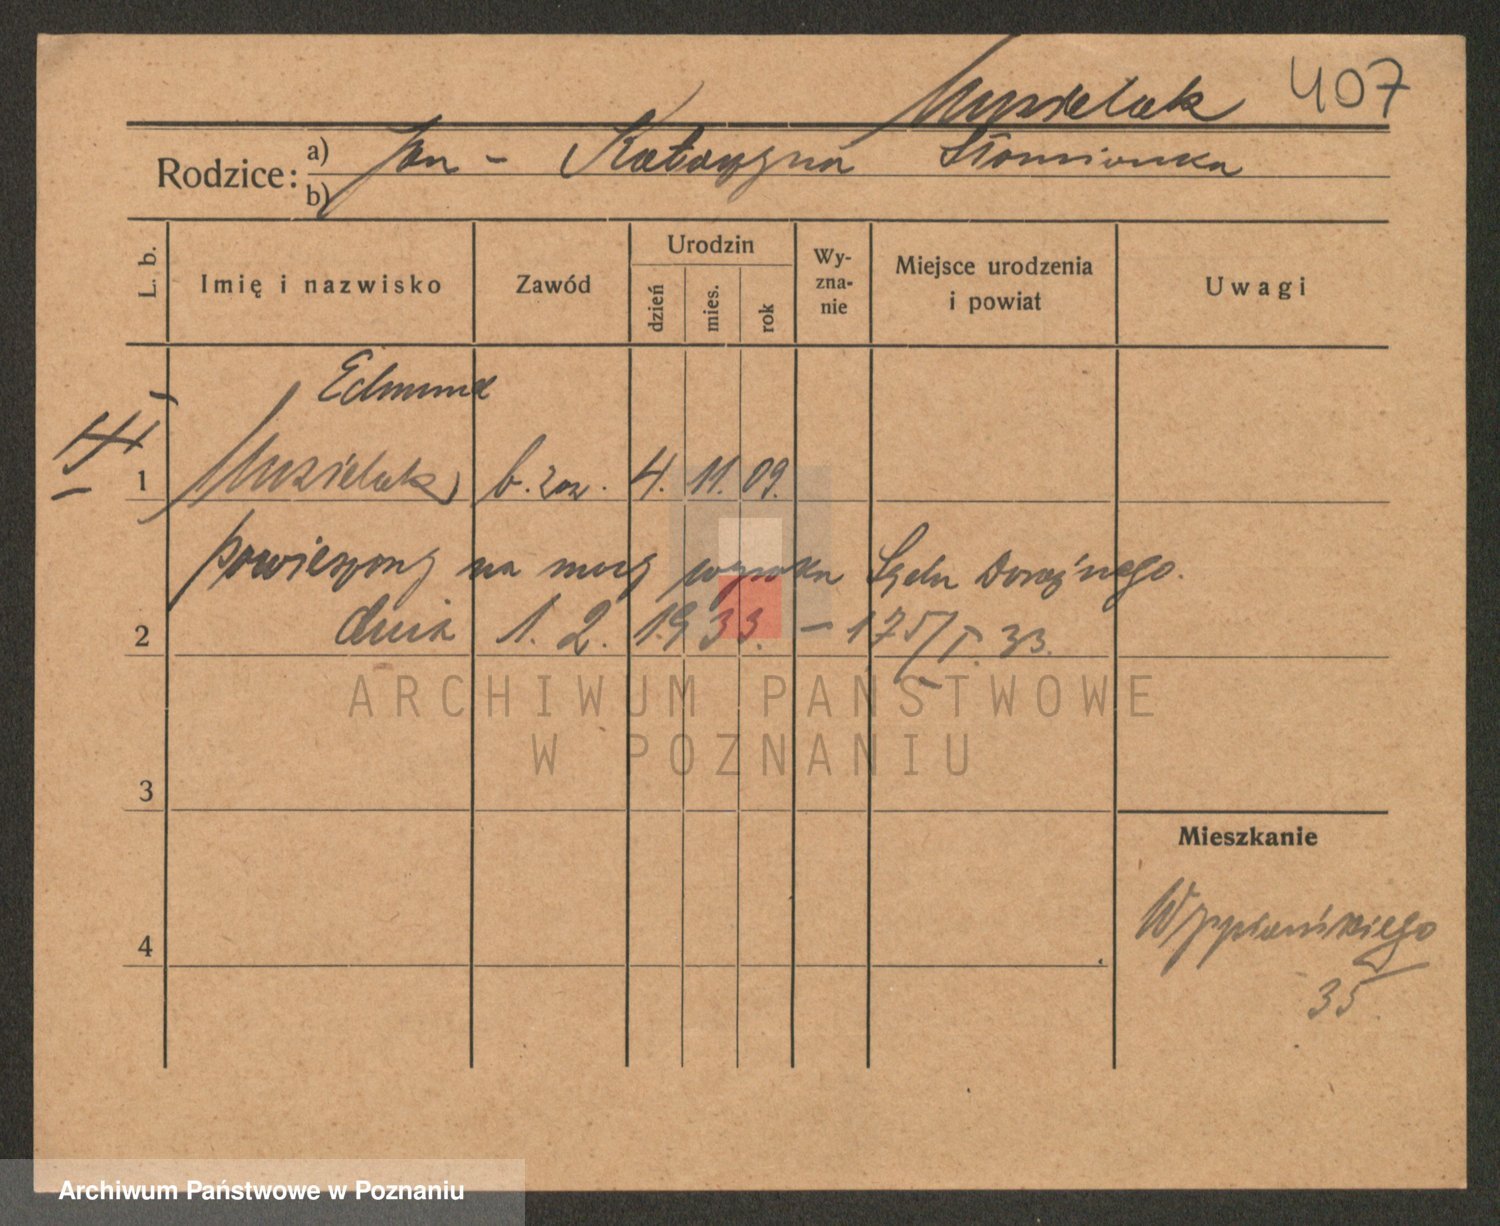 Musielak 407
Rodzice: a) Jan - Katarzyna Słomianka
b)
L. b.
Imię i nazwisko
Zawód
Urodzin
dzień
mies.
rok
Wy-
zna-
nie
Miejsce urodzenia
i powiat
Uwagi
Edmund
1 Musielak b. zaw. 4. 11. 09.
powieszony na mocy wyroku Sądu Doraźnego.
2 dnia 1. 2. 1933. - 175/I. 33.
ARCHIWUM PAŃSTWOWE
W POZNANIU
3
Mieszkanie
4 Wyspiańskiego
35
Archiwum Państwowe w Poznaniu